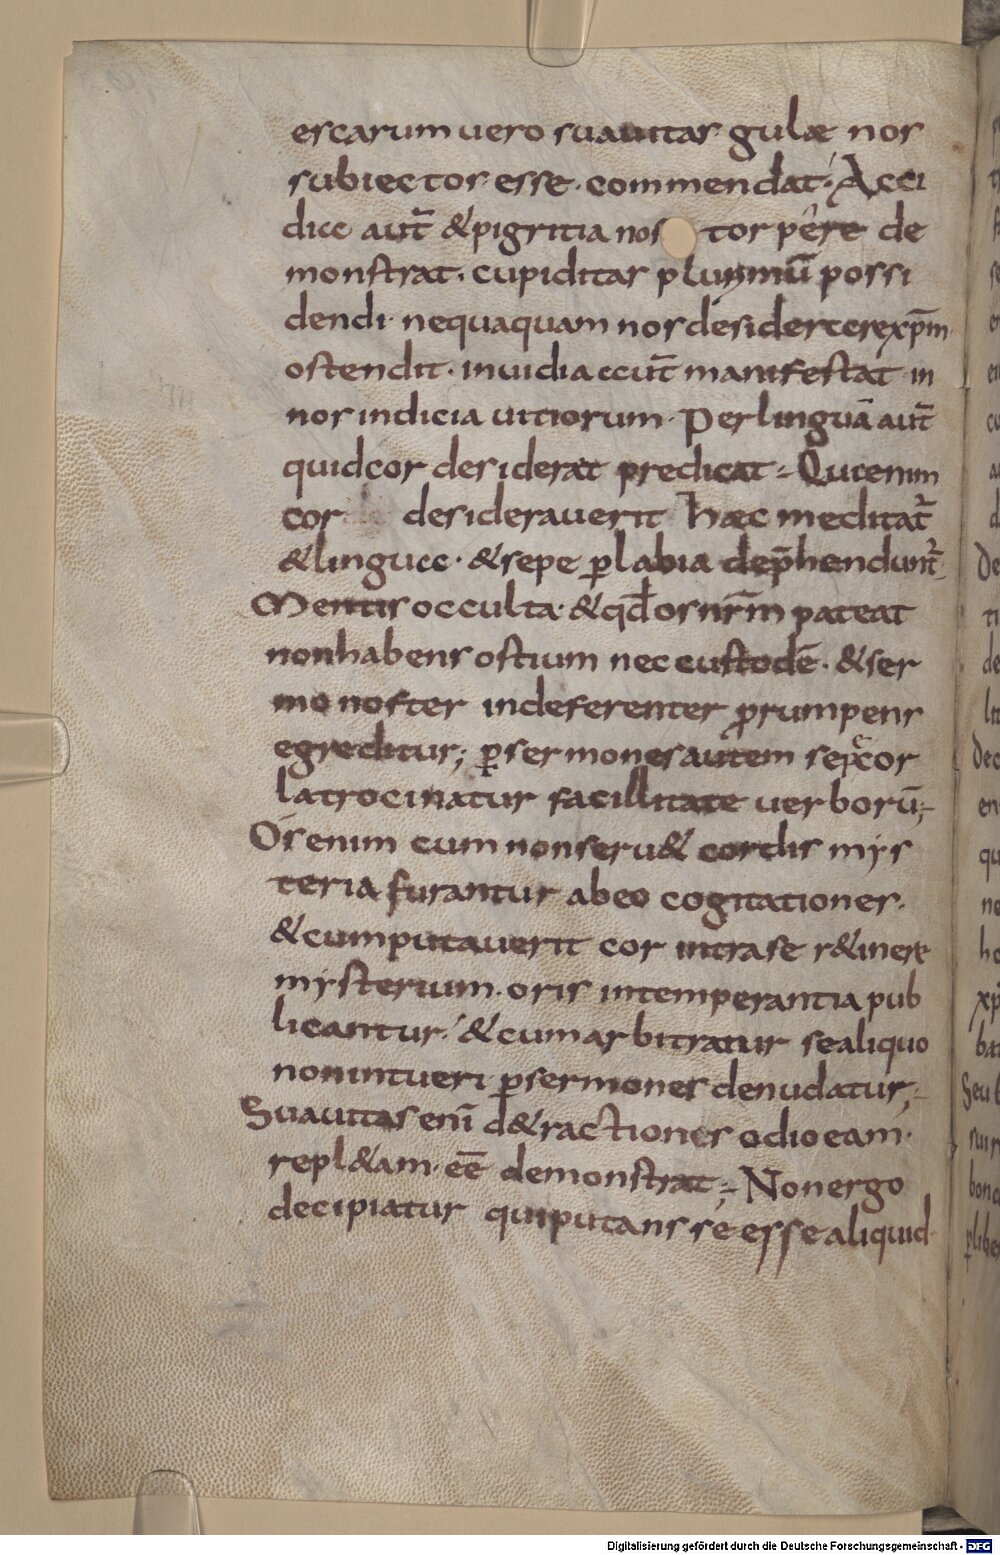 escarum vero suauitas gulæ nos
subiectos esse. commendat. Acci
dia aut̄ & pigritia nos torpere de
monstrat. cupiditas plurimū possi
dendi. nequaquam nos desiderare xp̄m
ostendit. inuidia aut̄ manifestat in
nos indicia uitiorum. Per linguā aut̄
quid cor desiderat predicat. Que enim
cor desiderauerit hæc meditat̄
& lingua. & sepe ꝑ labia dep̄hendunt̄
Mentis occulta. & qd̄ os nr̄m pateat
non habens ostium nec custodē. & ser
mo noster indeferenter prumpens
egreditur; ꝑ sermones autem sepe cor
latrocinatur facillitate uerborū;
Os enim cum non seru& cordis mys
teria furantur ab eo cogitationes.
& cum putauerit cor intra se r&inere
mysterium. oris intemperantia pub
licantur. & cum arbitratur se aliquo
non intueri ꝑ sermones denudatur;
Suauitas eni d&ractiones odio eam.
repl&am. eē demonstrat; Non ergo
decipiatur qui putans se esse aliquid
Digitalisierung gefördert durch die Deutsche Forschungsgemeinschaft - DFG